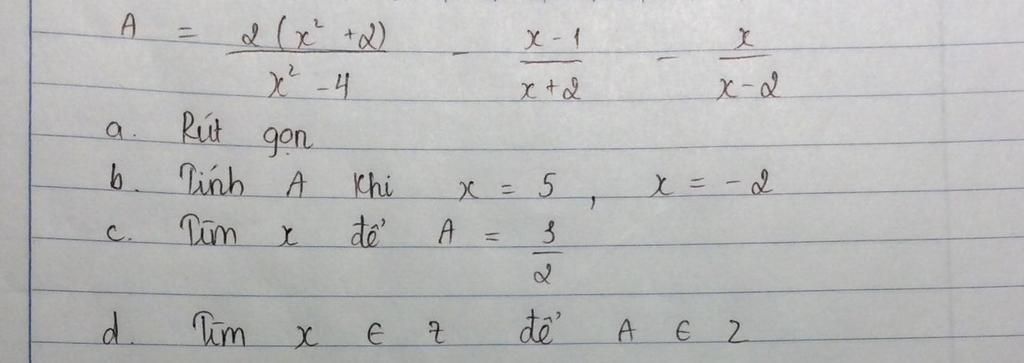 A = \frac{2(x^2+2)}{x^2-4} - \frac{x-1}{x+2} - \frac{x}{x-2}
a. Rút gọn
b. Tính A khi x = 5, x = -2
c. Tìm x để A = \frac{3}{2}
d. Tìm x ∈ Z để A ∈ Z